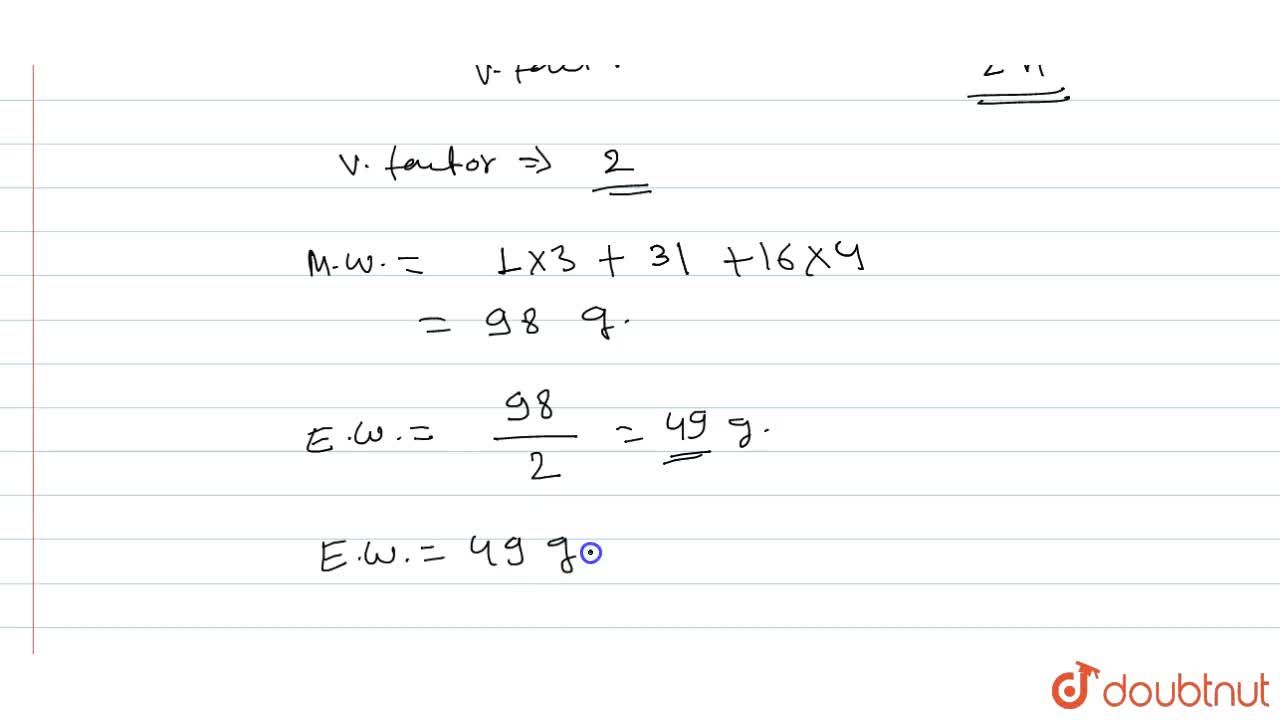 v. factor ⇒ 2
M.W. = 1×3 + 31 + 16×4
= 98 g.
E.W. = 98/2 = 49 g.
E.W. = 49 g
doubtnut